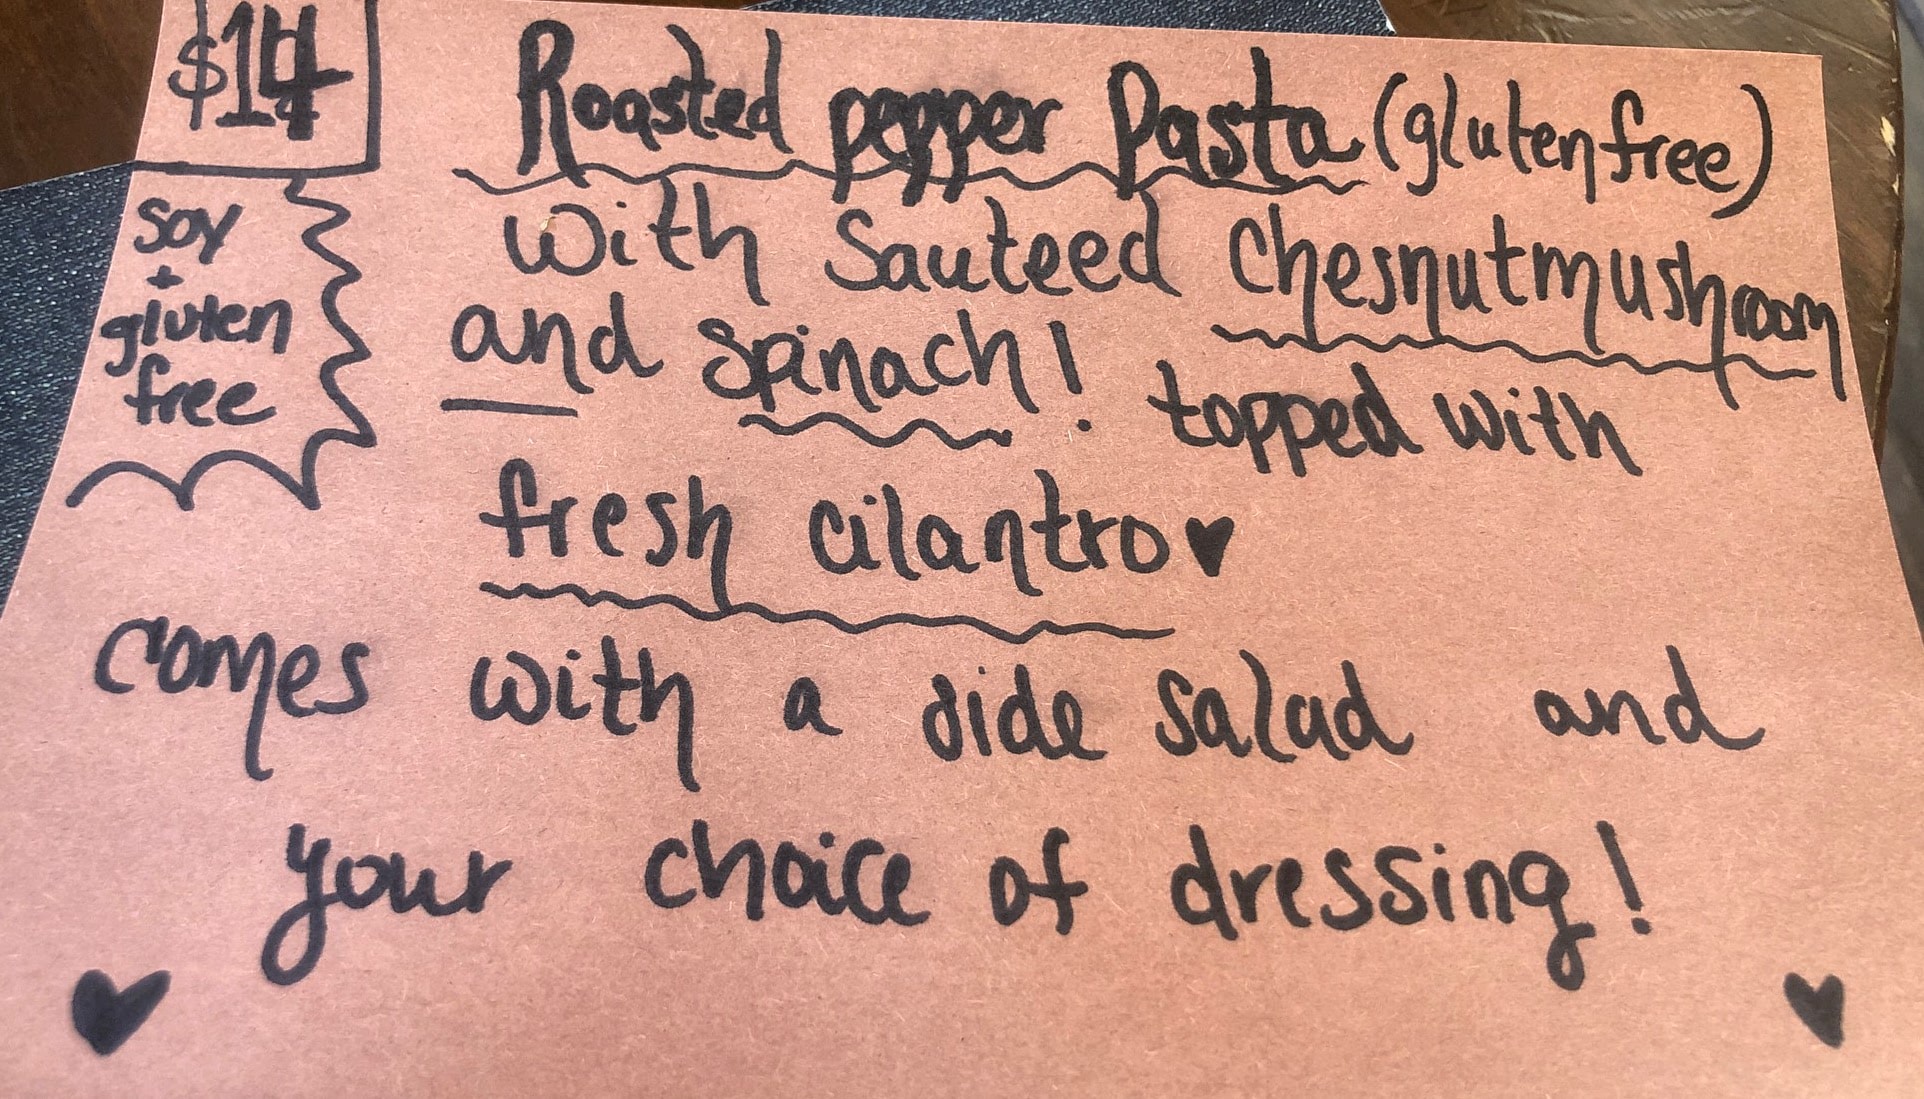 $14
soy
+
gluten
free
Roasted pepper Pasta (gluten free)
with Sauteed Chesnutmushroom
and spinach! topped with
fresh cilantro♥
comes with a side salad and
your choice of dressing!